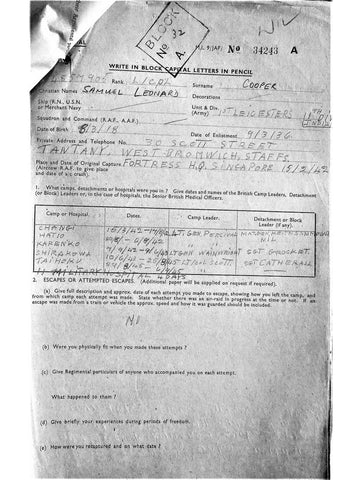 NIL
BLOCK
No 32
A.
M.I. 9/JAP/ No 34243 A
WRITE IN BLOCK CAPITAL LETTERS IN PENCIL
Rank L/CPL Surname COOPER
Christian Names SAMUEL LEONARD Decorations
Ship (R.N., U.S.N. or Merchant Navy) Unit & Div. (Army) 1st LEICESTERS
Squadron and Command (R.A.F., A.A.F.)
Date of Birth 8/3/18 Date of Enlistment 9/3/36
Private Address and Telephone No. 30 SCOTT STREET
TANTANY, WEST BROMWICH, STAFFS
Place and Date of Original Capture FORTRESS H.Q. SINGAPORE 15/2/42
(Aircrew R.A.F. to give place and date of a/c crash).
1. What camps, detachments or hospitals were you in? Give dates and names of the British Camp Leaders, Detachment (or Block) Leaders or, in the case of hospitals, the Senior British Medical Officers.
Camp or Hospital. Dates. Camp Leader. Detachment or Block Leader (if any).
CHANGI LT GEN PERCIVAL
HATIO NIL
KARENKO
SHIRAKAWA LT GEN WAINWRIGHT SGT CROCKET
TAIHOKU LT COL SCOTT SGT CATHERALL
11 MILITARY HOSPITAL
2. ESCAPES OR ATTEMPTED ESCAPES. (Additional paper will be supplied on request if required).
(a) Give full description and approx. date of each attempt you made to escape, showing how you left the camp, and from which camp each attempt was made. State whether there was an air-raid in progress at the time or not. If an escape was made from a train or vehicle the approx. speed and how it was guarded should be included.
(b) Were you physically fit when you made these attempts?
(c) Give Regimental particulars of anyone who accompanied you on each attempt.
What happened to them?
(d) Give briefly your experiences during periods of freedom.
(e) How were you recaptured and on what date?